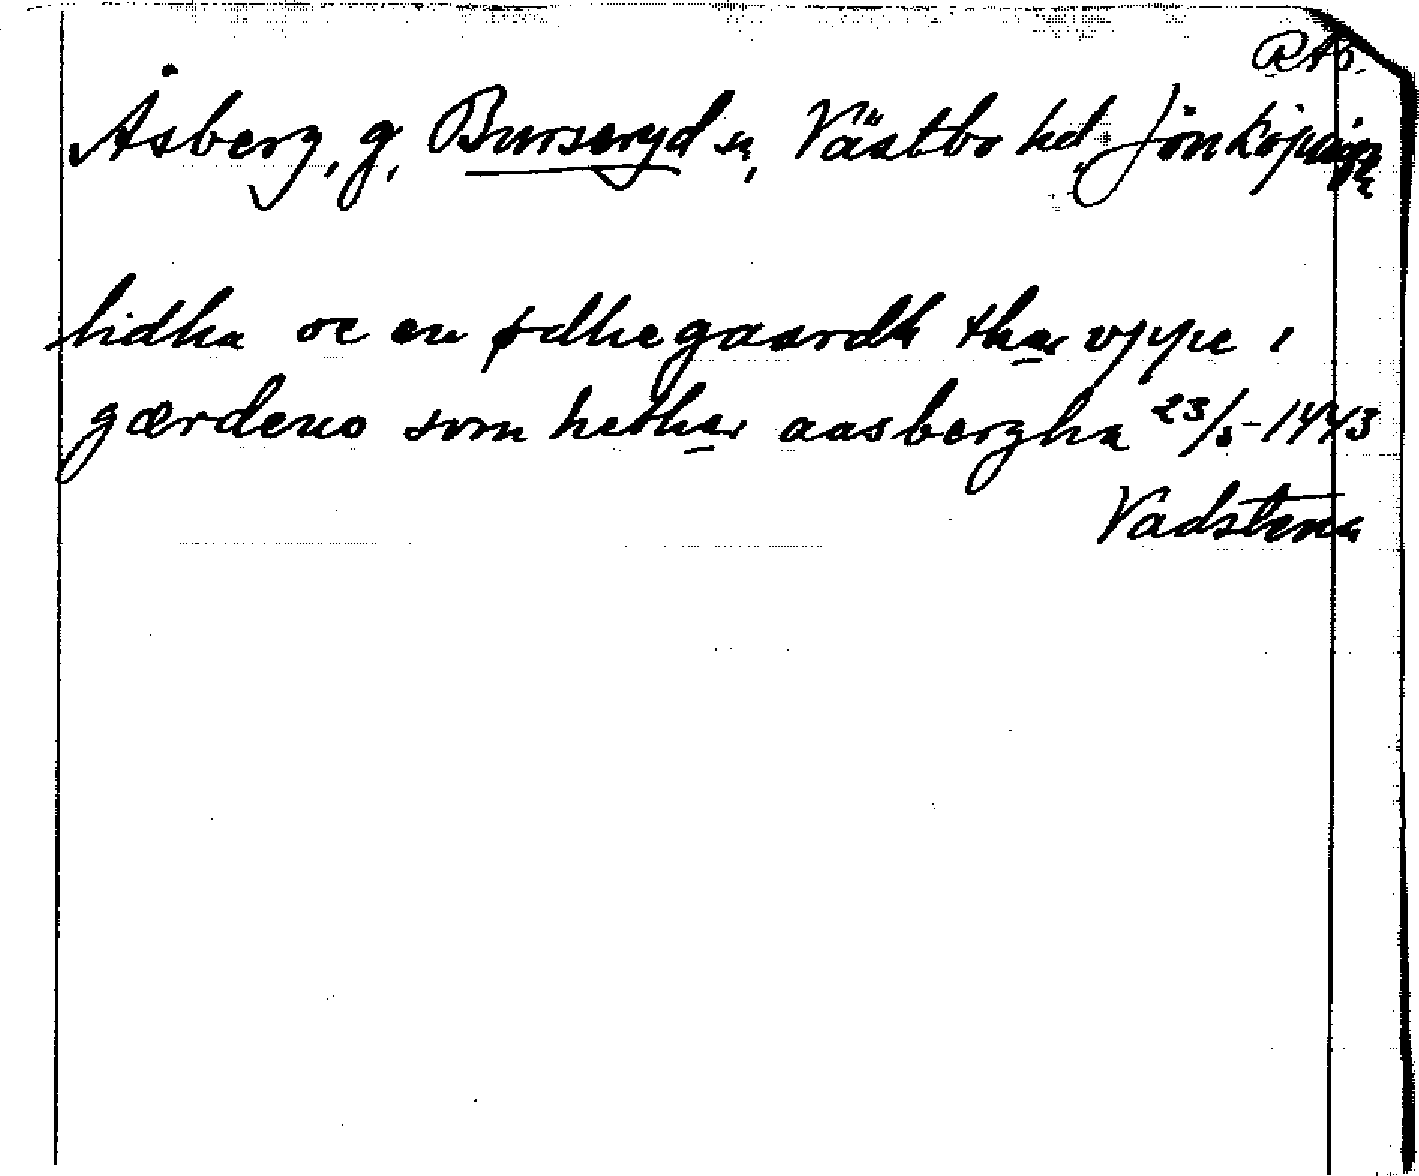 RAp.
Åsberg, g, Burseryd sn, Västbo hd Jönköping
lidha oc en ødhegaardh thær vppe i
gærdeno som hether aasbergha 23/3-1443
Vadstena